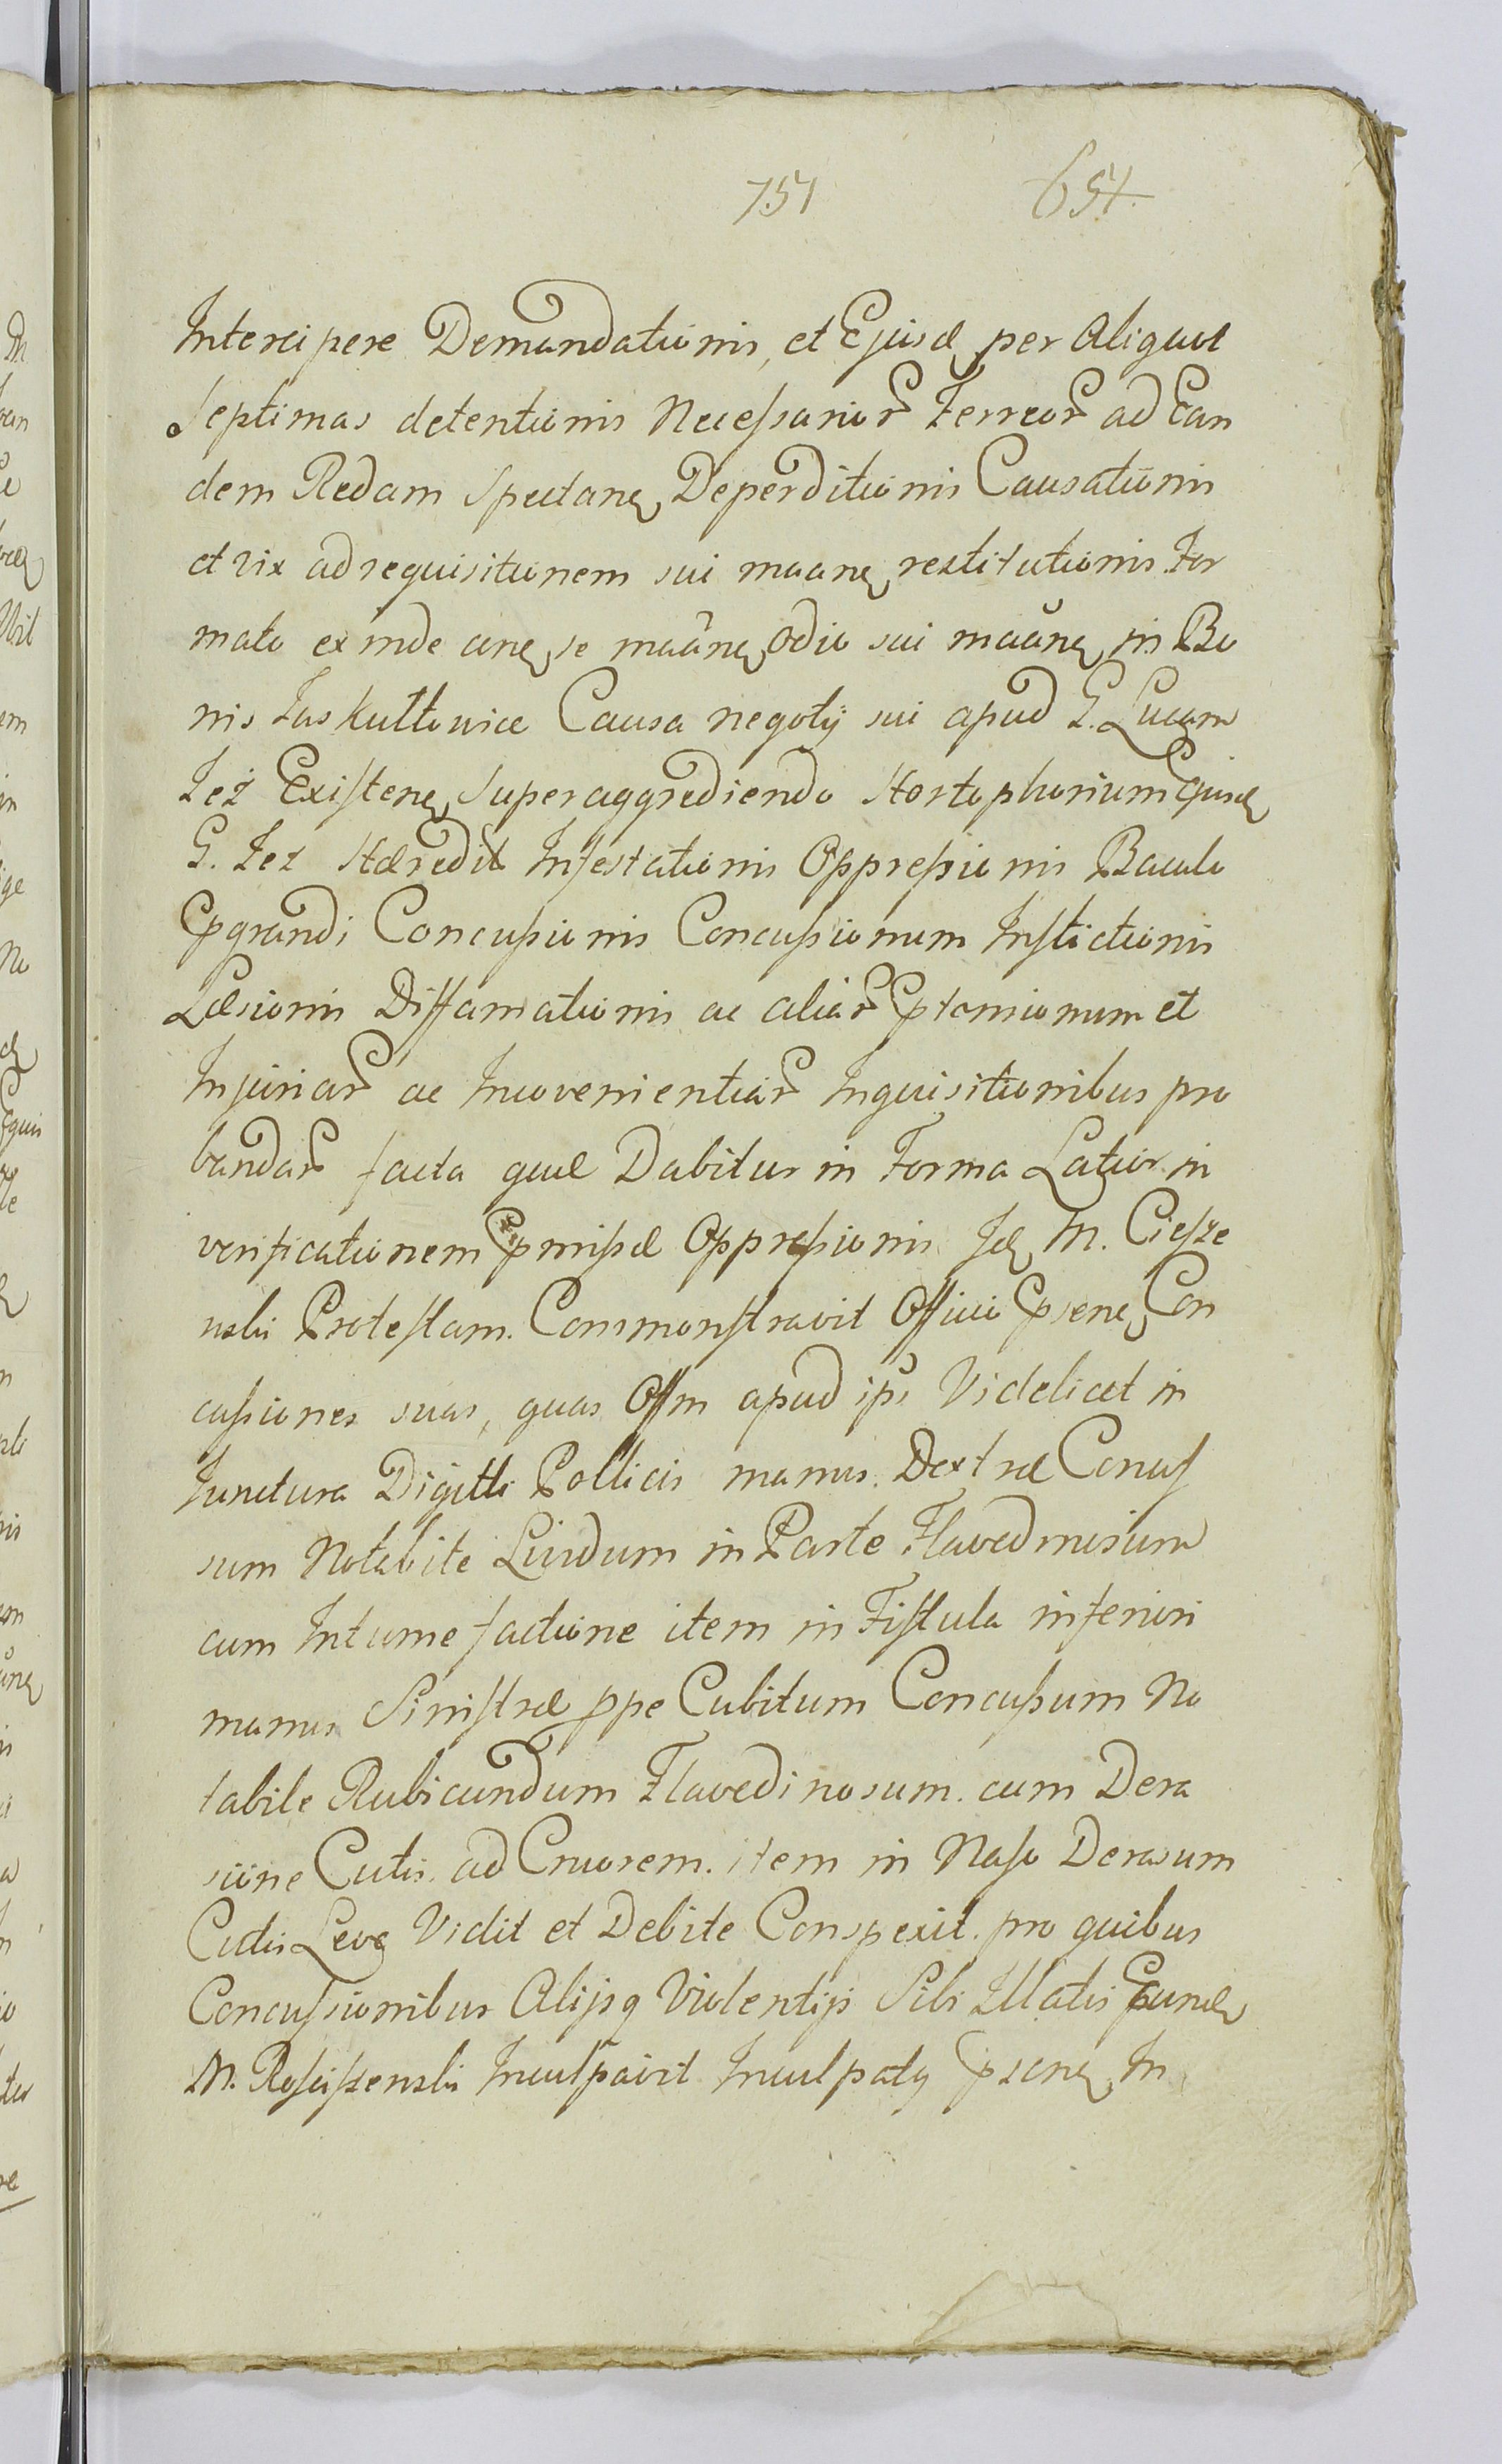 751 654.
Intercipere Demandationis, et Ejusd per Aliquot
Septimas detentionis Necessarior Ferreor ad Ean
dem Redam Spectane Deperditionis Causationis
et vix ad requisitionem sui maane restitutionis For
mato exinde ane se maane odio sui maane in Bo
nis Jaskułtowice Causa negotij sui apud G. Lucam
Jeż Existene superaggrediendo Hortophorium Ejusd
G. Jeż Hæredit Infestationis Oppressionis Baculo
Pgrandi Concussionis Concussionum Inflictionis
Læsionis Diffamationis ac aliar Ptensionum et
Injuriar ac Inconvenientiar Inquisitionibus pro
bandar facta quæ Dabitur in Forma Latior in
verificationem Pmissæ Oppressionis Id M. Ciesze
wski Protestam. Commonstravit Officio Psene Con
cussiones suas, quas Offm apud ips Videlicet in
Junctura Digitti Pollicis manus. Dextræ Concus
sum Notabile Lividum in Parte Flavedinosum
cum Intumefactione item in Fistula inferiori
manus Sinistræ ppe Cubitum Concussum No
tabile Rubicundum Flavedinosum. cum Dera
sione Cutis. ad Cruorem. item in Naso Derasum
Cutis Leve Vidit et Debite Conspexit. pro quibus
Concussionibus Alijsq Violentijs Sibi Illatis
M. Inculpavit Inculpatq Psene In